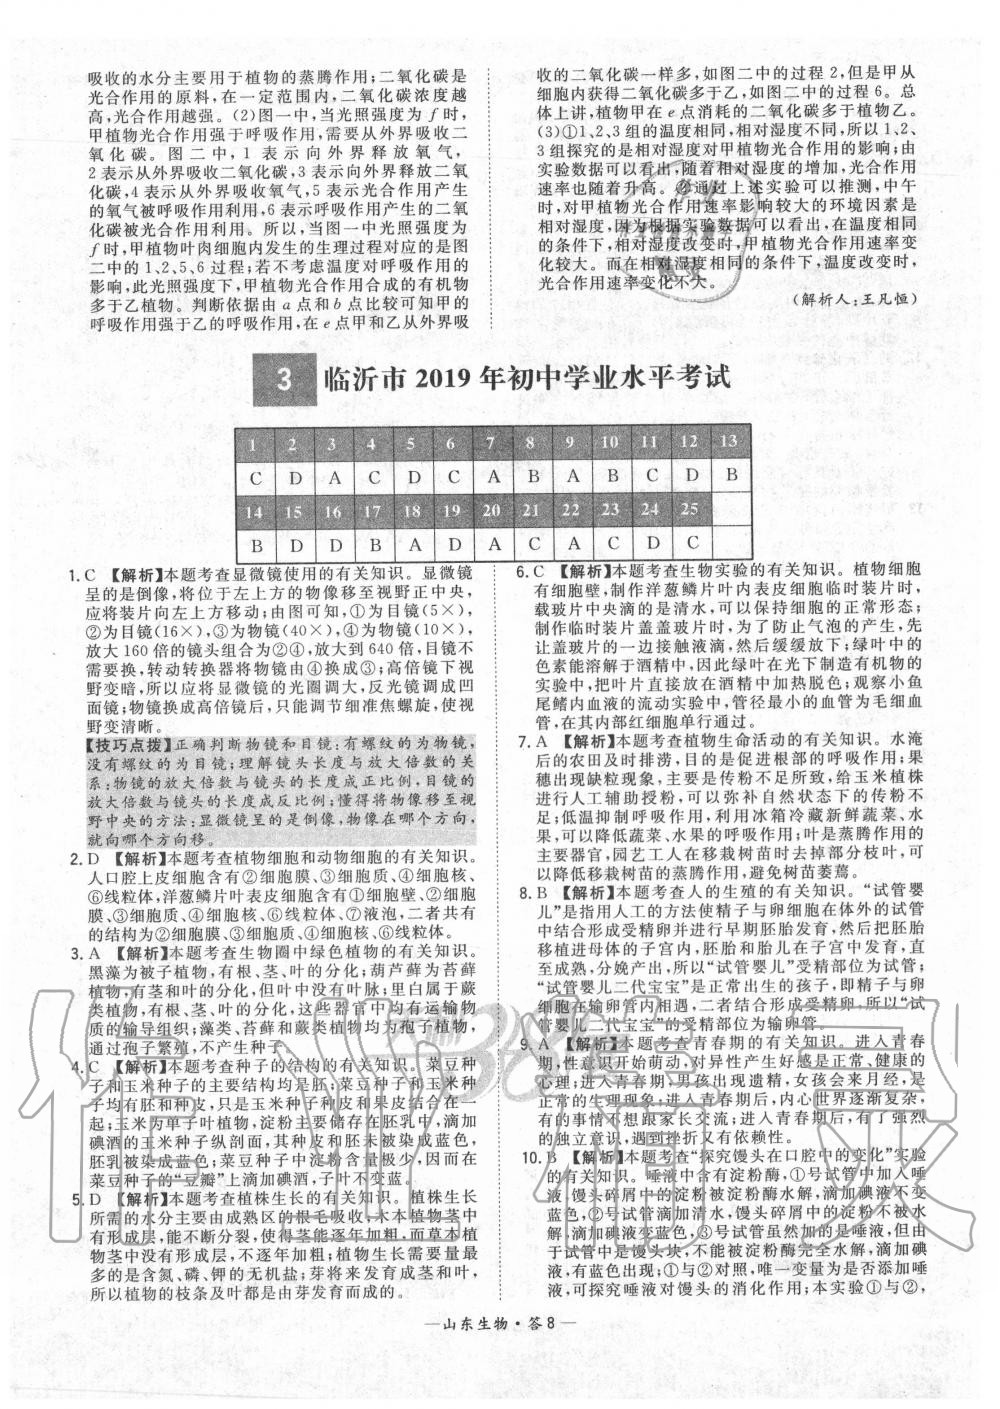 吸收的水分主要用于植物的蒸腾作用;二氧化碳是
光合作用的原料,在一定范围内,二氧化碳浓度越
高,光合作用越强。(2)图一中,当光照强度为 f 时,
甲植物光合作用强于呼吸作用,需要从外界吸收二
氧化碳。图二中,1 表示向外界释放氧气,
2 表示从外界吸收二氧化碳,3 表示向外界释放二氧
化碳,4 表示从外界吸收氧气,5 表示光合作用产生
的氧气被呼吸作用利用,6 表示呼吸作用产生的二氧
化碳被光合作用利用。所以,当图一中光照强度为
f 时,甲植物叶肉细胞内发生的生理过程对应的是图
二中的 1、2、5、6 过程;若不考虑温度对呼吸作用的
影响,此光照强度下甲植物光合作用合成的有机物
多于乙植物。判断依据由 a 点和 b 点比较可知甲的
呼吸作用强于乙的呼吸作用,在 e 点甲和乙从外界吸
收的二氧化碳一样多,如图二中的过程 2,但是甲从
细胞内获得二氧化碳多于乙,如图二中的过程 6。总
体上讲,植物甲在 e 点消耗的二氧化碳多于植物乙。
(3)①1、2、3 组的温度相同,相对湿度不同,所以 1、2、
3 组探究的是相对湿度对甲植物光合作用的影响;由
实验数据可以看出,随着相对湿度的增加,光合作用
速率也随着升高。②通过上述实验可以推测,中午
时,对甲植物光合作用速率影响较大的环境因素是
相对湿度,因为根据实验数据可以看出,在温度相同
的条件下,相对湿度改变时,甲植物光合作用速率变
化较大。而在相对湿度相同的条件下,温度改变时,
光合作用速率变化不大。
(解析人:王凡恒)
3 临沂市 2019 年初中学业水平考试
1 2 3 4 5 6 7 8 9 10 11 12 13
C D A C D C A B A B C D B
14 15 16 17 18 19 20 21 22 23 24 25
B D B A D A C A C D C
1. C 【解析】本题考查显微镜使用的有关知识。显微镜
呈的是倒像,将位于左上方的物像移至视野正中央,
应将装片向左上方移动;由图可知,①为目镜(5×),
②为目镜(16×),③为物镜(40×),④为物镜(10×),
放大 160 倍的镜头组合为②④,放大到 640 倍,目镜不
需要换,转动转换器将物镜由④换成③;高倍镜下视
野变暗,所以应将显微镜的光圈调大,反光镜调成凹
面镜;物镜换成高倍镜后,只能调节细准焦螺旋,使视
野变清晰。
【技巧点拨】正确判断物镜和目镜:有螺纹的为物镜,
没有螺纹的为目镜;理解镜头长度与放大倍数的关
系:物镜的放大倍数与镜头的长度成正比例,目镜的
放大倍数与镜头的长度成反比例;懂得将物像移至视
野中央的方法:显微镜呈的是倒像,物像在哪个方向,
就向哪个方向移。
2. D 【解析】本题考查植物细胞和动物细胞的有关知识。
人口腔上皮细胞含有②细胞膜、③细胞质、④细胞核、
⑥线粒体,洋葱鳞片叶表皮细胞含有①细胞壁、②细胞
膜、③细胞质、④细胞核、⑥线粒体、⑦液泡,二者共有
的结构为②细胞膜、③细胞质、④细胞核、⑥线粒体。
3. A 【解析】本题考查生物圈中绿色植物的有关知识。
黑藻为被子植物,有根、茎、叶的分化;葫芦藓为苔藓
植物,有茎和叶的分化,但叶中没有叶脉;里白属于蕨
类植物,有根、茎、叶的分化,这些器官中均有运输物
质的输导组织;藻类、苔藓和蕨类植物均为孢子植物,
通过孢子繁殖,不产生种子。
4. C 【解析】本题考查种子的结构的有关知识。菜豆种
子和玉米种子的主要结构均是胚;菜豆种子和玉米种
子均有胚和种皮,只是玉米种子种皮和果皮结合在一
起;玉米为单子叶植物,淀粉主要储存在胚乳中,滴加
碘酒的玉米种子纵剖面,其种皮和胚未被染成蓝色,
胚乳被染成蓝色;菜豆种子中淀粉含量极少,因而在
菜豆种子的“豆瓣”上滴加碘酒,子叶不变蓝。
5. D 【解析】本题考查植株生长的有关知识。植株生长
所需的水分主要由成熟区的根毛吸收,木本植物茎中
有形成层,能不断分裂,使得茎能逐年加粗,而草本植
物茎中没有形成层,不逐年加粗;植物生长需要较多
的是含氮、磷、钾的无机盐;芽将来发育成茎和叶,
所以植物的枝条及叶都是由芽发育而成的。
6. C 【解析】本题考查生物实验的有关知识。植物细胞
有细胞壁,制作洋葱鳞片叶内表皮细胞临时装片时,
载玻片中央滴的是清水,可以保持细胞的正常形态;
制作临时装片盖盖玻片时,为了防止气泡的产生,先
让盖玻片的一边接触液滴,然后缓缓放下;绿叶中的
色素能溶解于酒精中,因此绿叶在光下制造有机物的
实验中,把叶片直接放在酒精中加热脱色;观察小鱼
尾鳍内血液的流动实验中,管径最小的血管为毛细血
管,在其内部红细胞单行通过。
7. A 【解析】本题考查植物生命活动的有关知识。水淹
后的农田及时排涝,目的是促进根部的呼吸作用;果
穗出现缺粒现象,主要是传粉不足所致,给玉米植株
进行人工辅助授粉,可以弥补自然状态下的传粉不
足;低温抑制呼吸作用,利用冰箱冷藏新鲜蔬菜、水
果,可以降低蔬菜、水果的呼吸作用;叶是蒸腾作用的
主要器官,园艺工人在移栽树苗时去掉部分枝叶,可
以降低移栽树苗的蒸腾作用,避免树苗萎蔫。
8. B 【解析】本题考查人的生殖的有关知识。“试管婴
儿”是指用人工的方法使精子与卵细胞在体外的试管
中结合形成受精卵并进行早期胚胎发育,然后把胚胎
移植进母体的子宫内,胚胎和胎儿在子宫中发育,直
至成熟,分娩产出,所以“试管婴儿”受精部位为试管;
“试管婴儿二代宝宝”是正常出生的孩子,即精子与卵
细胞在输卵管内相遇,二者结合形成受精卵,所以“试
管婴儿二代宝宝”的受精部位为输卵管。
9. A 【解析】本题考查青春期的有关知识。进入青春
期,性意识开始萌动,对异性产生好感是正常、健康的
心理;进入青春期,男孩出现遗精,女孩会来月经,是
正常的生理现象;进入青春期后,内心世界逐渐复杂,
有的事情不想跟家长交流;进入青春期后,有了强烈
的独立意识,遇到挫折又有依赖性。
10. B 【解析】本题考查“探究馒头在口腔中的变化”实验
的有关知识。唾液中含有淀粉酶,①号试管中滴加唾
液,馒头碎屑中的淀粉被淀粉酶水解,滴加碘液不变
蓝色,②号试管中滴加清水,馒头碎屑中的淀粉没被水
解,滴加碘液变蓝色,③号试管虽然加的是唾液,但由
于试管中是馒头块,不能被淀粉酶完全水解,滴加碘液
也会出现蓝色;①与②对照,唯一变量为是否添加唾
液,可探究唾液对馒头的消化作用;本实验①与②,
—山东生物·答 8—